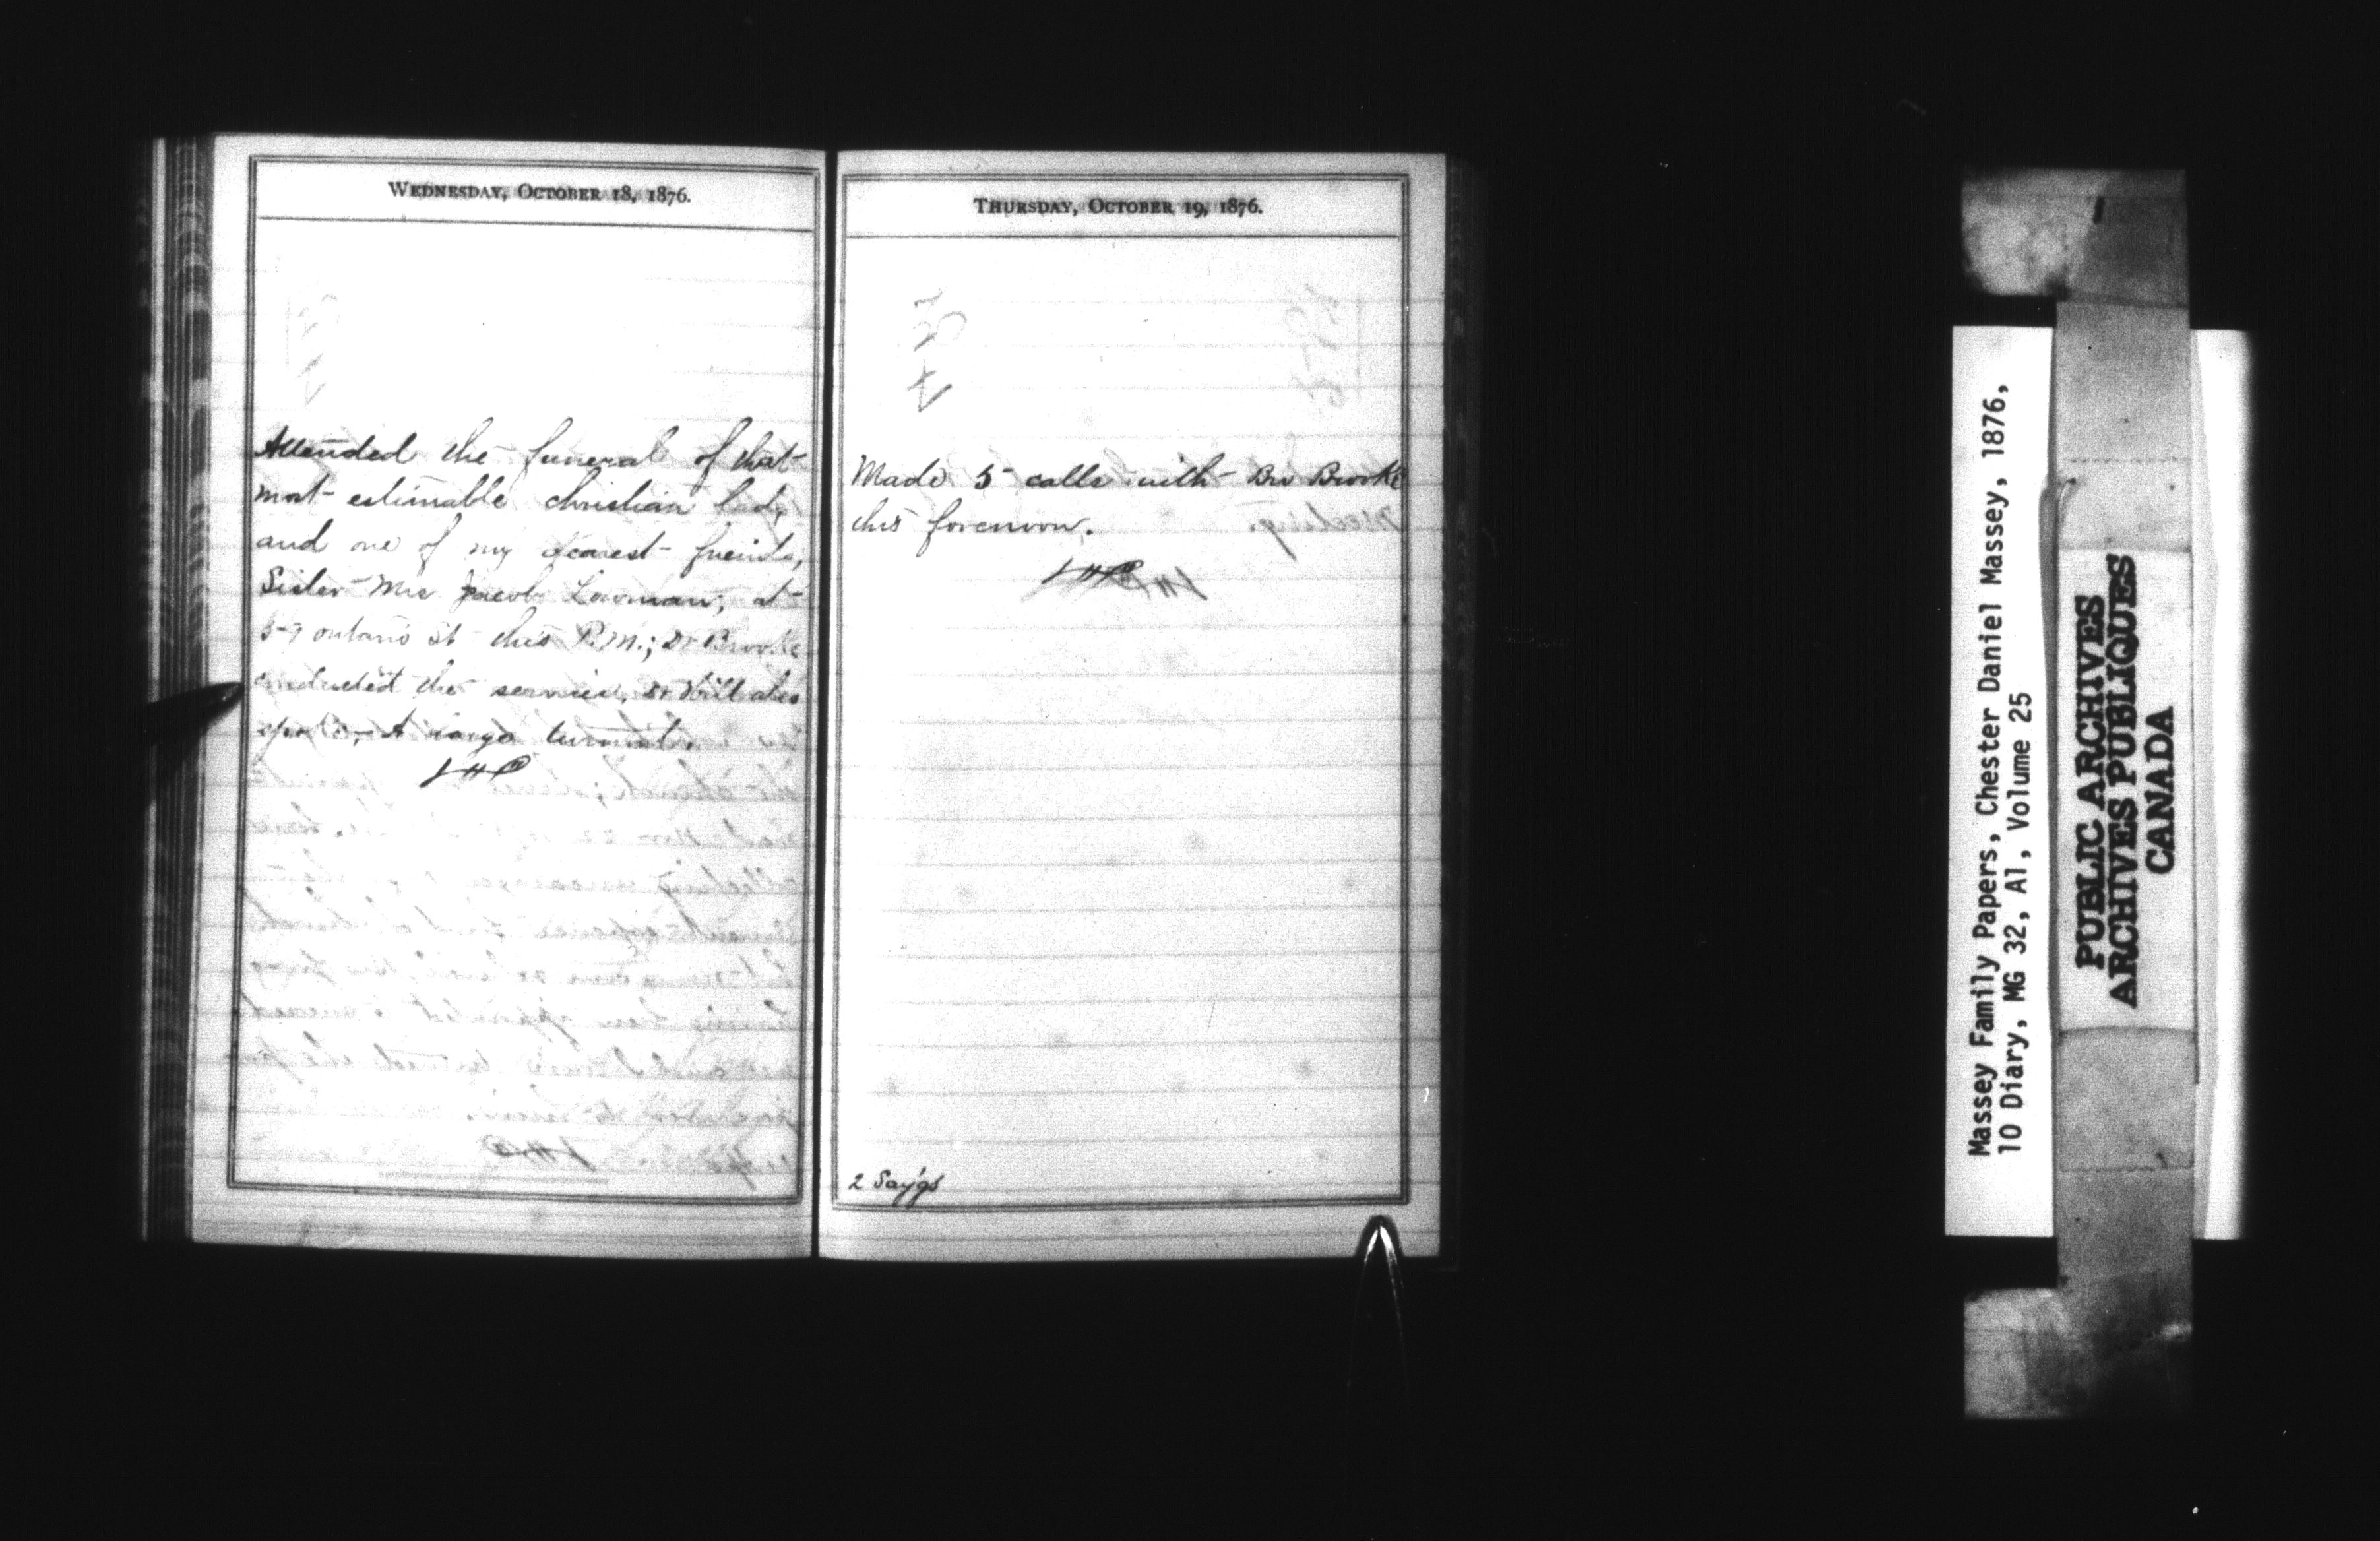 WEDNESDAY, OCTOBER 18, 1876.
Attended the funeral of that
most estimable christian lady
and one of my dearest friends,
Sister Mrs Jacob Lowman, at
57 ontario St this P.M.; Dr Brooke
conducted the service, Dr Hill also
spoke, A large turnout.
THURSDAY, OCTOBER 19, 1876.
Made 5 calls with Bro Brooke
this forenoon.
2 Say'gs
Massey Family Papers, Chester Daniel Massey, 1876,
10 Diary, MG 32, A1, Volume 25
PUBLIC ARCHIVES
ARCHIVES PUBLIQUES
CANADA